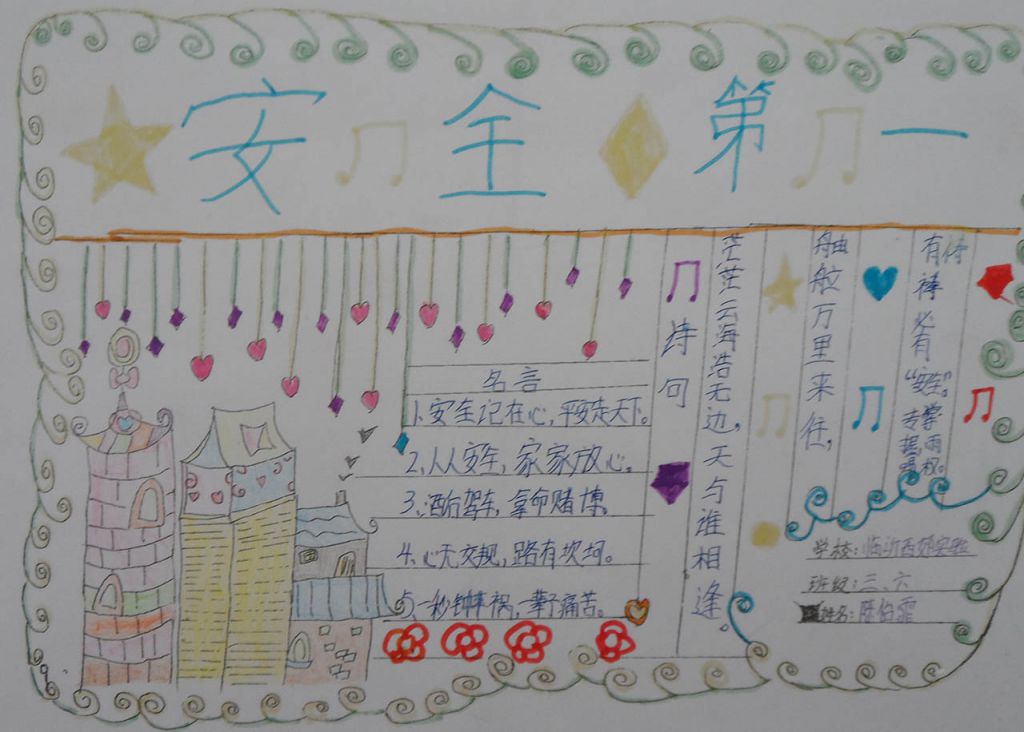 安全第一
名言
1、安全记在心，平安走天下。
2、人人安全，家家放心。
3、酒后驾车，拿命赌博。
4、心无交规，路有坎坷。
5、一秒钟车祸，一辈子痛苦。
诗句
茫茫云海浩无边，天与谁相逢。
舳舣万里来往，
有恃
棒必有
“安生”。
专掌
雨
权。
学校：临沂西郊实验
班级：三、六
姓名：陈怡霏